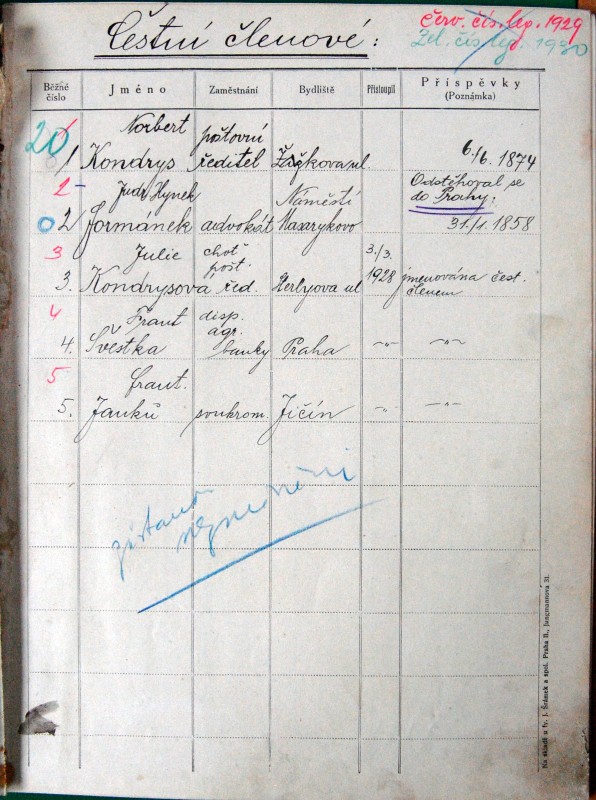 Čestní členové:
červ. čís. leg. 1929
Zel. čís. leg. 1930
Běžné
číslo
Jméno
Zaměstnání
Bydliště
Přistoupil
Příspěvky
(Poznámka)
20
1 Norbert
Kondrys
poštovní
ředitel
Žižkova ul.
6./6. 1874
Odstěhoval se
do Prahy.
2
0 2 Judr Hynek
Formánek
advokát
Náměstí
Masarykovo
31./1. 1858
3
3. Julie
Kondrysova
choť
pošt.
řed.
Herlyova ul
3./3.
1928
jmenována čest.
členem
4
4. Frant
Švestka
disp.
agr.
banky
Praha
-„-
-„-
5
5. frant.
Janků
soukrom.
Jičín
-„-
-„-
Na skladě u fy. J. Šrámek a spol. Praha II., Jungmannová 31.